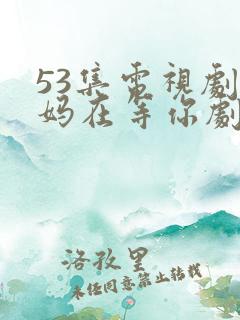 53集電視劇
妈在等你劇
洛孜里
未任同意禁止转载